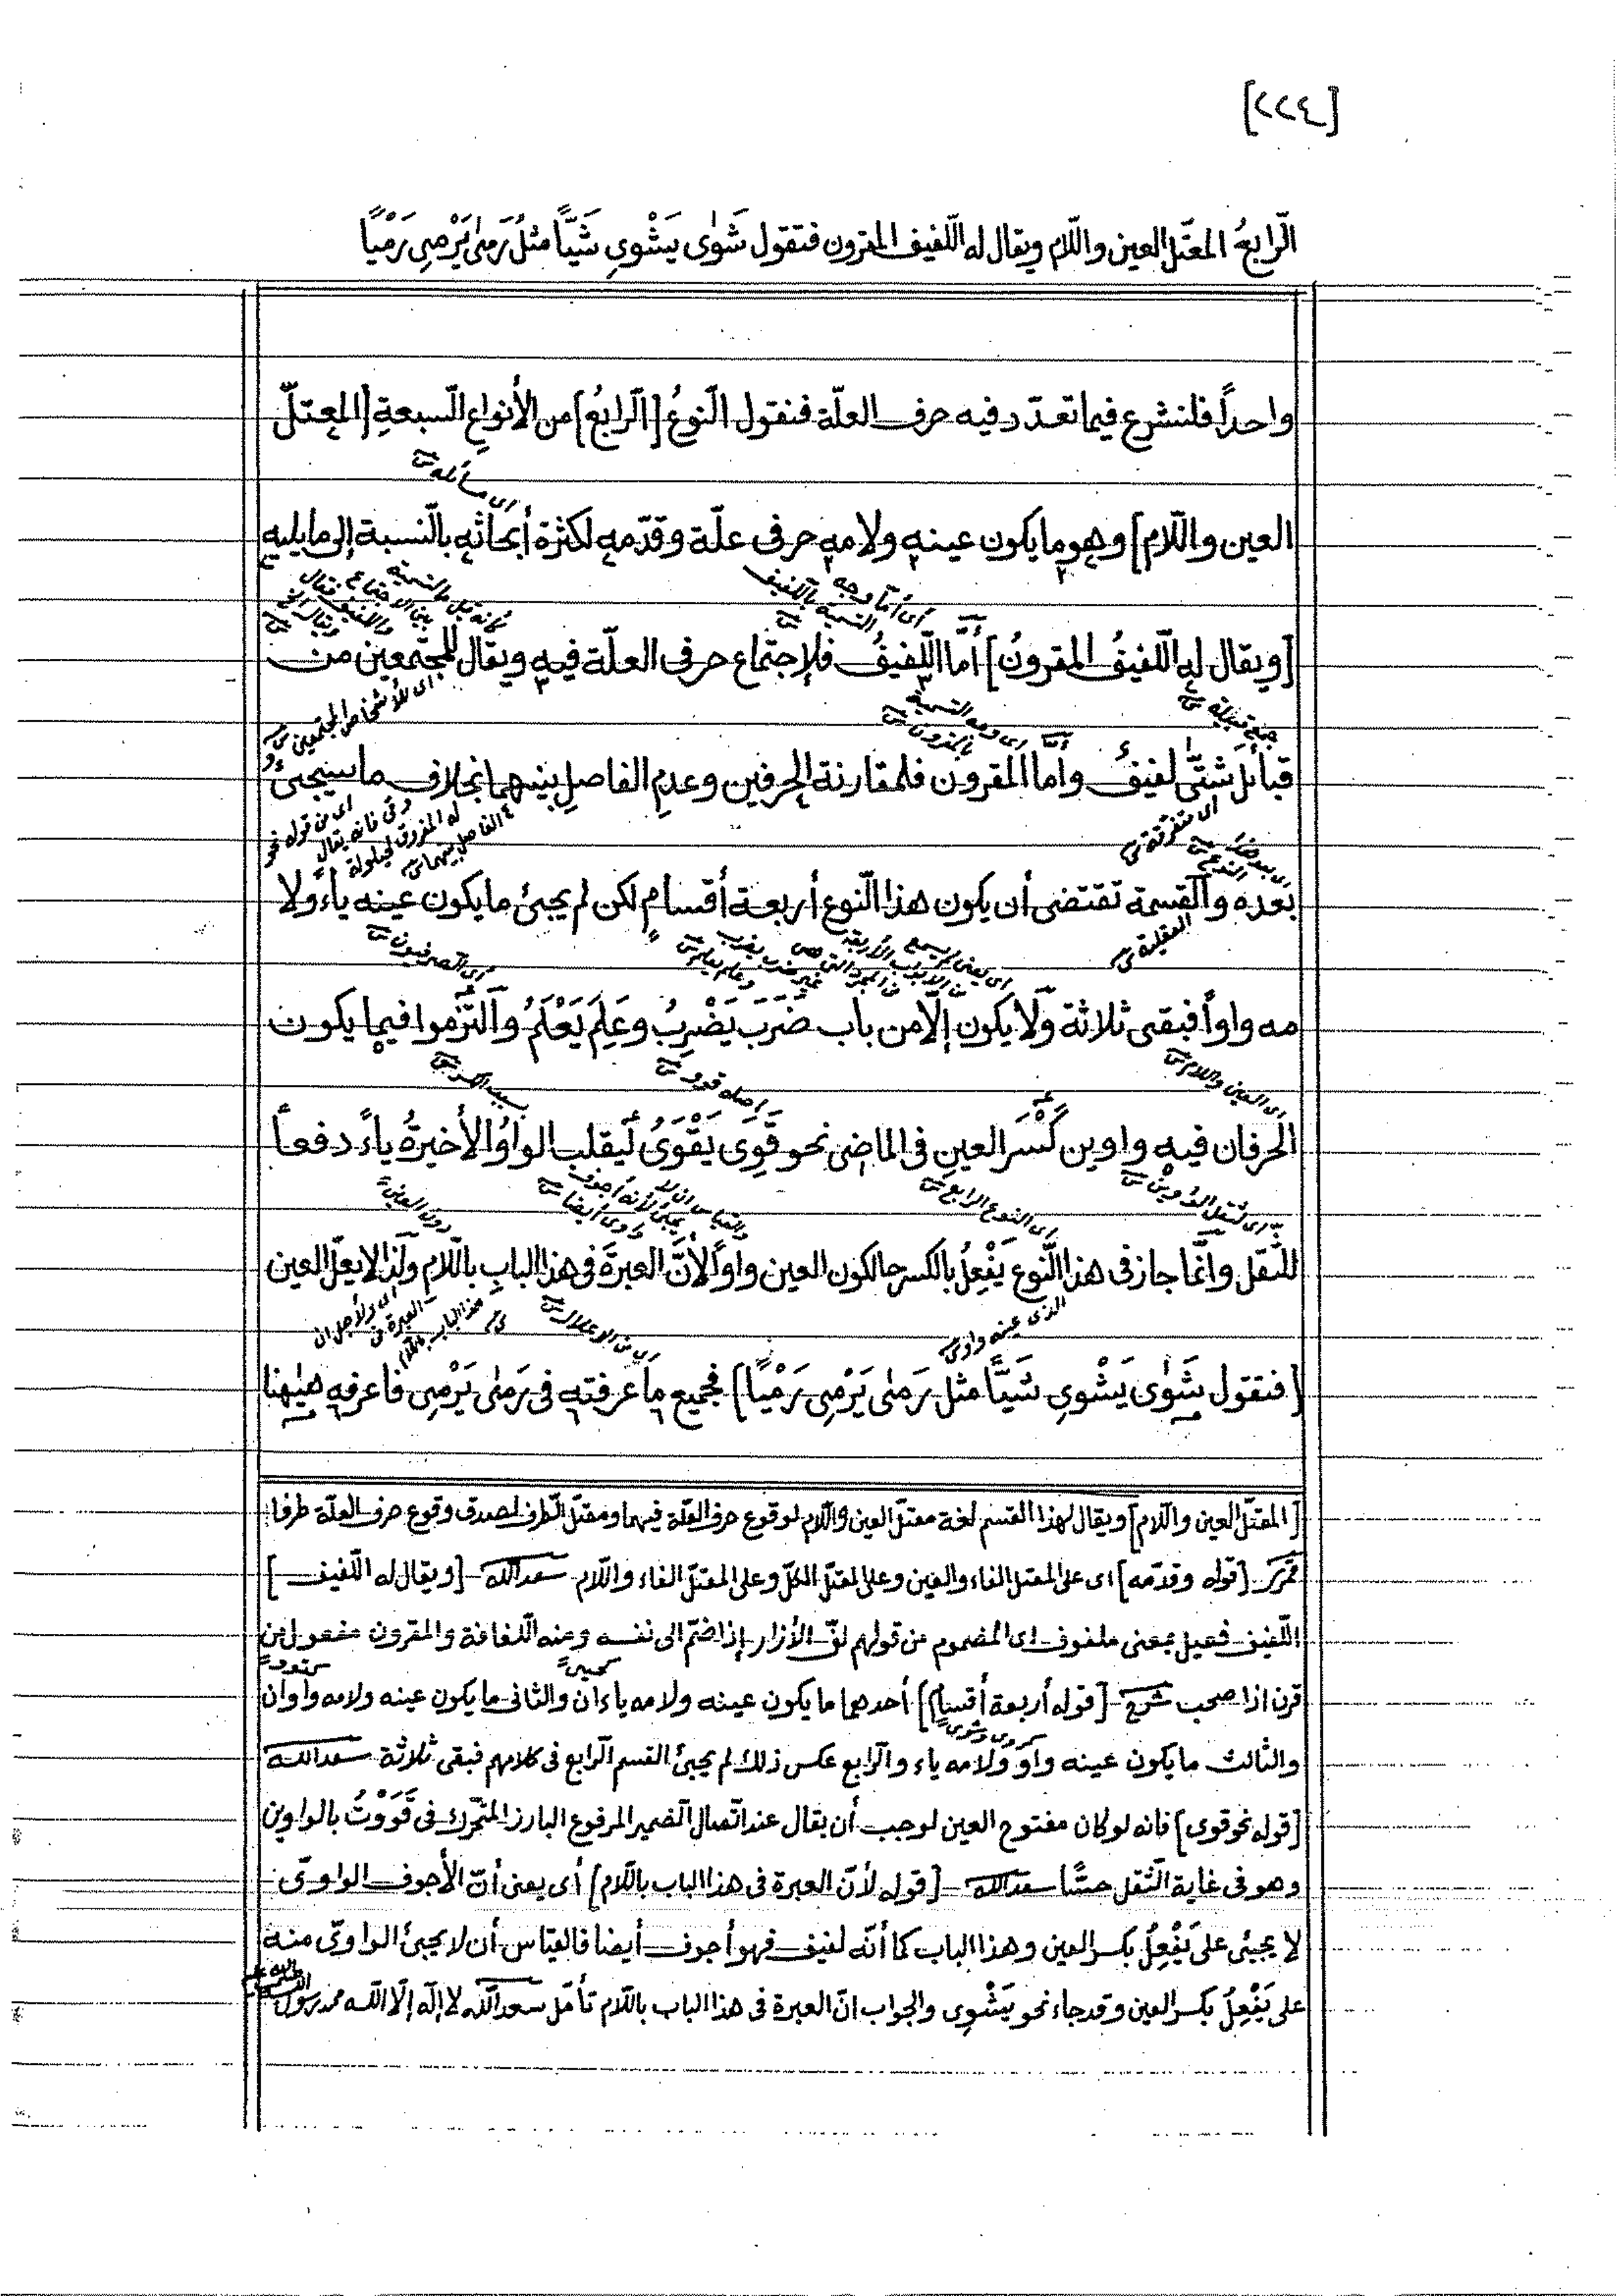 [٢٢٤]
الرّابعُ المعتلّ العين واللّام ويقال له اللّفيف المقرون فتقول شَوٰى يَشْوِي شَيًّا مثلُ رَمىٰ يَرْمِي رَمْيًا
واحداً فلنشرع فيما تعدّد فيه حرف العلّة فنقول النّوعُ [الرّابعُ] من الأنواعِ السّبعةِ [المعتلّ
اى مسائله
العين واللّام] وهو ما يكون عينه ولامه حرفى علّة وقدّمه لكثرة أبحاثه بالنّسبة إلى ما يليه
أى أمّا وجه التسمية باللّفيف
[ويقال له اللّفيفُ المقرونُ] أمّا اللّفيفُ فلإجتماع حرفى العلّة فيه ويقال للمجتمعين من
اى للأشخاص المجتمعين
اى وجه التسمية بالمقرون
قبائل شتّٰى لفيفٌ وأما المقرون فلمقارنة الحرفين وعدمِ الفاصلِ بينهما بخلاف ما سيجئُ
اى متفرّقة
اى من قوله نحو وقى فانه يقال له المفروق لحيلولة الفاصل بينهما
بعده والقسمة تقتضى أن يكون هذا النّوع أربعة أقسامٍ لكن لم يجئ ما يكون عينه ياءً ولا
العقلية
أى الصرفيون
مه واواً فبقى ثلاثة ولا يكون إلّا من باب ضَرَبَ يَضْرِبُ وعَلِمَ يَعْلَمُ والتزموا فيما يكون
اى العين واللام
اصله قوو
الحرفان فيه واوين كَسْرَ العينِ فى الماضى نحو قَوِىَ يَقْوَىُ لِيقلب الواوُ الأخيرةُ ياءً دفعاً
اى لثقل الواوين
اى النوع الرابع
دون العين
للثّقل وانّما جاز فى هذا النّوع يَفْعِلُ بالكسر حالكون العين واواً لأنّ العبرةَ فى هذا البابِ باللّام ولذا لا يعلّ العين
الذى عينه واوى
اى من الاعلال
اى ولأجل ان العبرة فى هذا الباب باللّام
[فتقول شَوٰى يَشْوِي شَيًّا مثل رَمىٰ يَرْمِى رَمْيًا] فجميع ما عرفته فى رَمىٰ يَرْمِى فاعرفه هٰيهنا
[المعتلّ العين واللّام] ويقال لهذا القسم لغة معتلّ العين واللّام لوقوع حرف العلّة فيهما ومعتلّ الطّرف لصدق وقوع حرف العلّة طرفا
[قوله وقدّمه] اى على المعتل الفاء والعين وعلى المعتلّ الكلّ وعلى المعتلّ الفاء واللّام سعدالله [ويقال له اللّفيف]
اللّفيف فعيل بمعنى ملفوف اى المضموم من قولهم لفّ الأزار إذا ضمّ الى نفسه ومنه اللّفافة والمقرون مفعول من
كحيى
قرن اذا صحب شرح [قوله أربعة أقسام] أحدهما ما يكون عينه ولامه ياءان والثانى ما يكون عينه ولامه واوان
كروى وشوى
والثالث ما يكون عينه واو ولامه ياء والرّابع عكس ذلك لم يجئ القسم الرّابع فى كلامهم فبقى ثلاثة سعدالله
[قوله نحو قوى] فانه لو كان مفتوح العين لوجب أن يقال عند اتّصال الضمير المرفوع البارز المتحّرك فى قَوَوْتُ بالواوين
وهو فى غاية الثّقل حسًّا سعدالله [قوله لأنّ العبرة فى هذا الباب باللّام] أى يعنى أنّ الأجوف الواوىّ
لا يجيئ على يَفْعِلُ بكسر العين وهذا الباب كما أنّه لفيف فهو أجوف أيضا فالقياس أن لا يجئ الواوىّ منه
على يَفْعِلُ بكسر العين وقد جاء نحو يَشْوِى والجواب انّ العبرة فى هذا الباب باللّام تأمّل سعدالله لا إله إلّا الله محمد رسول